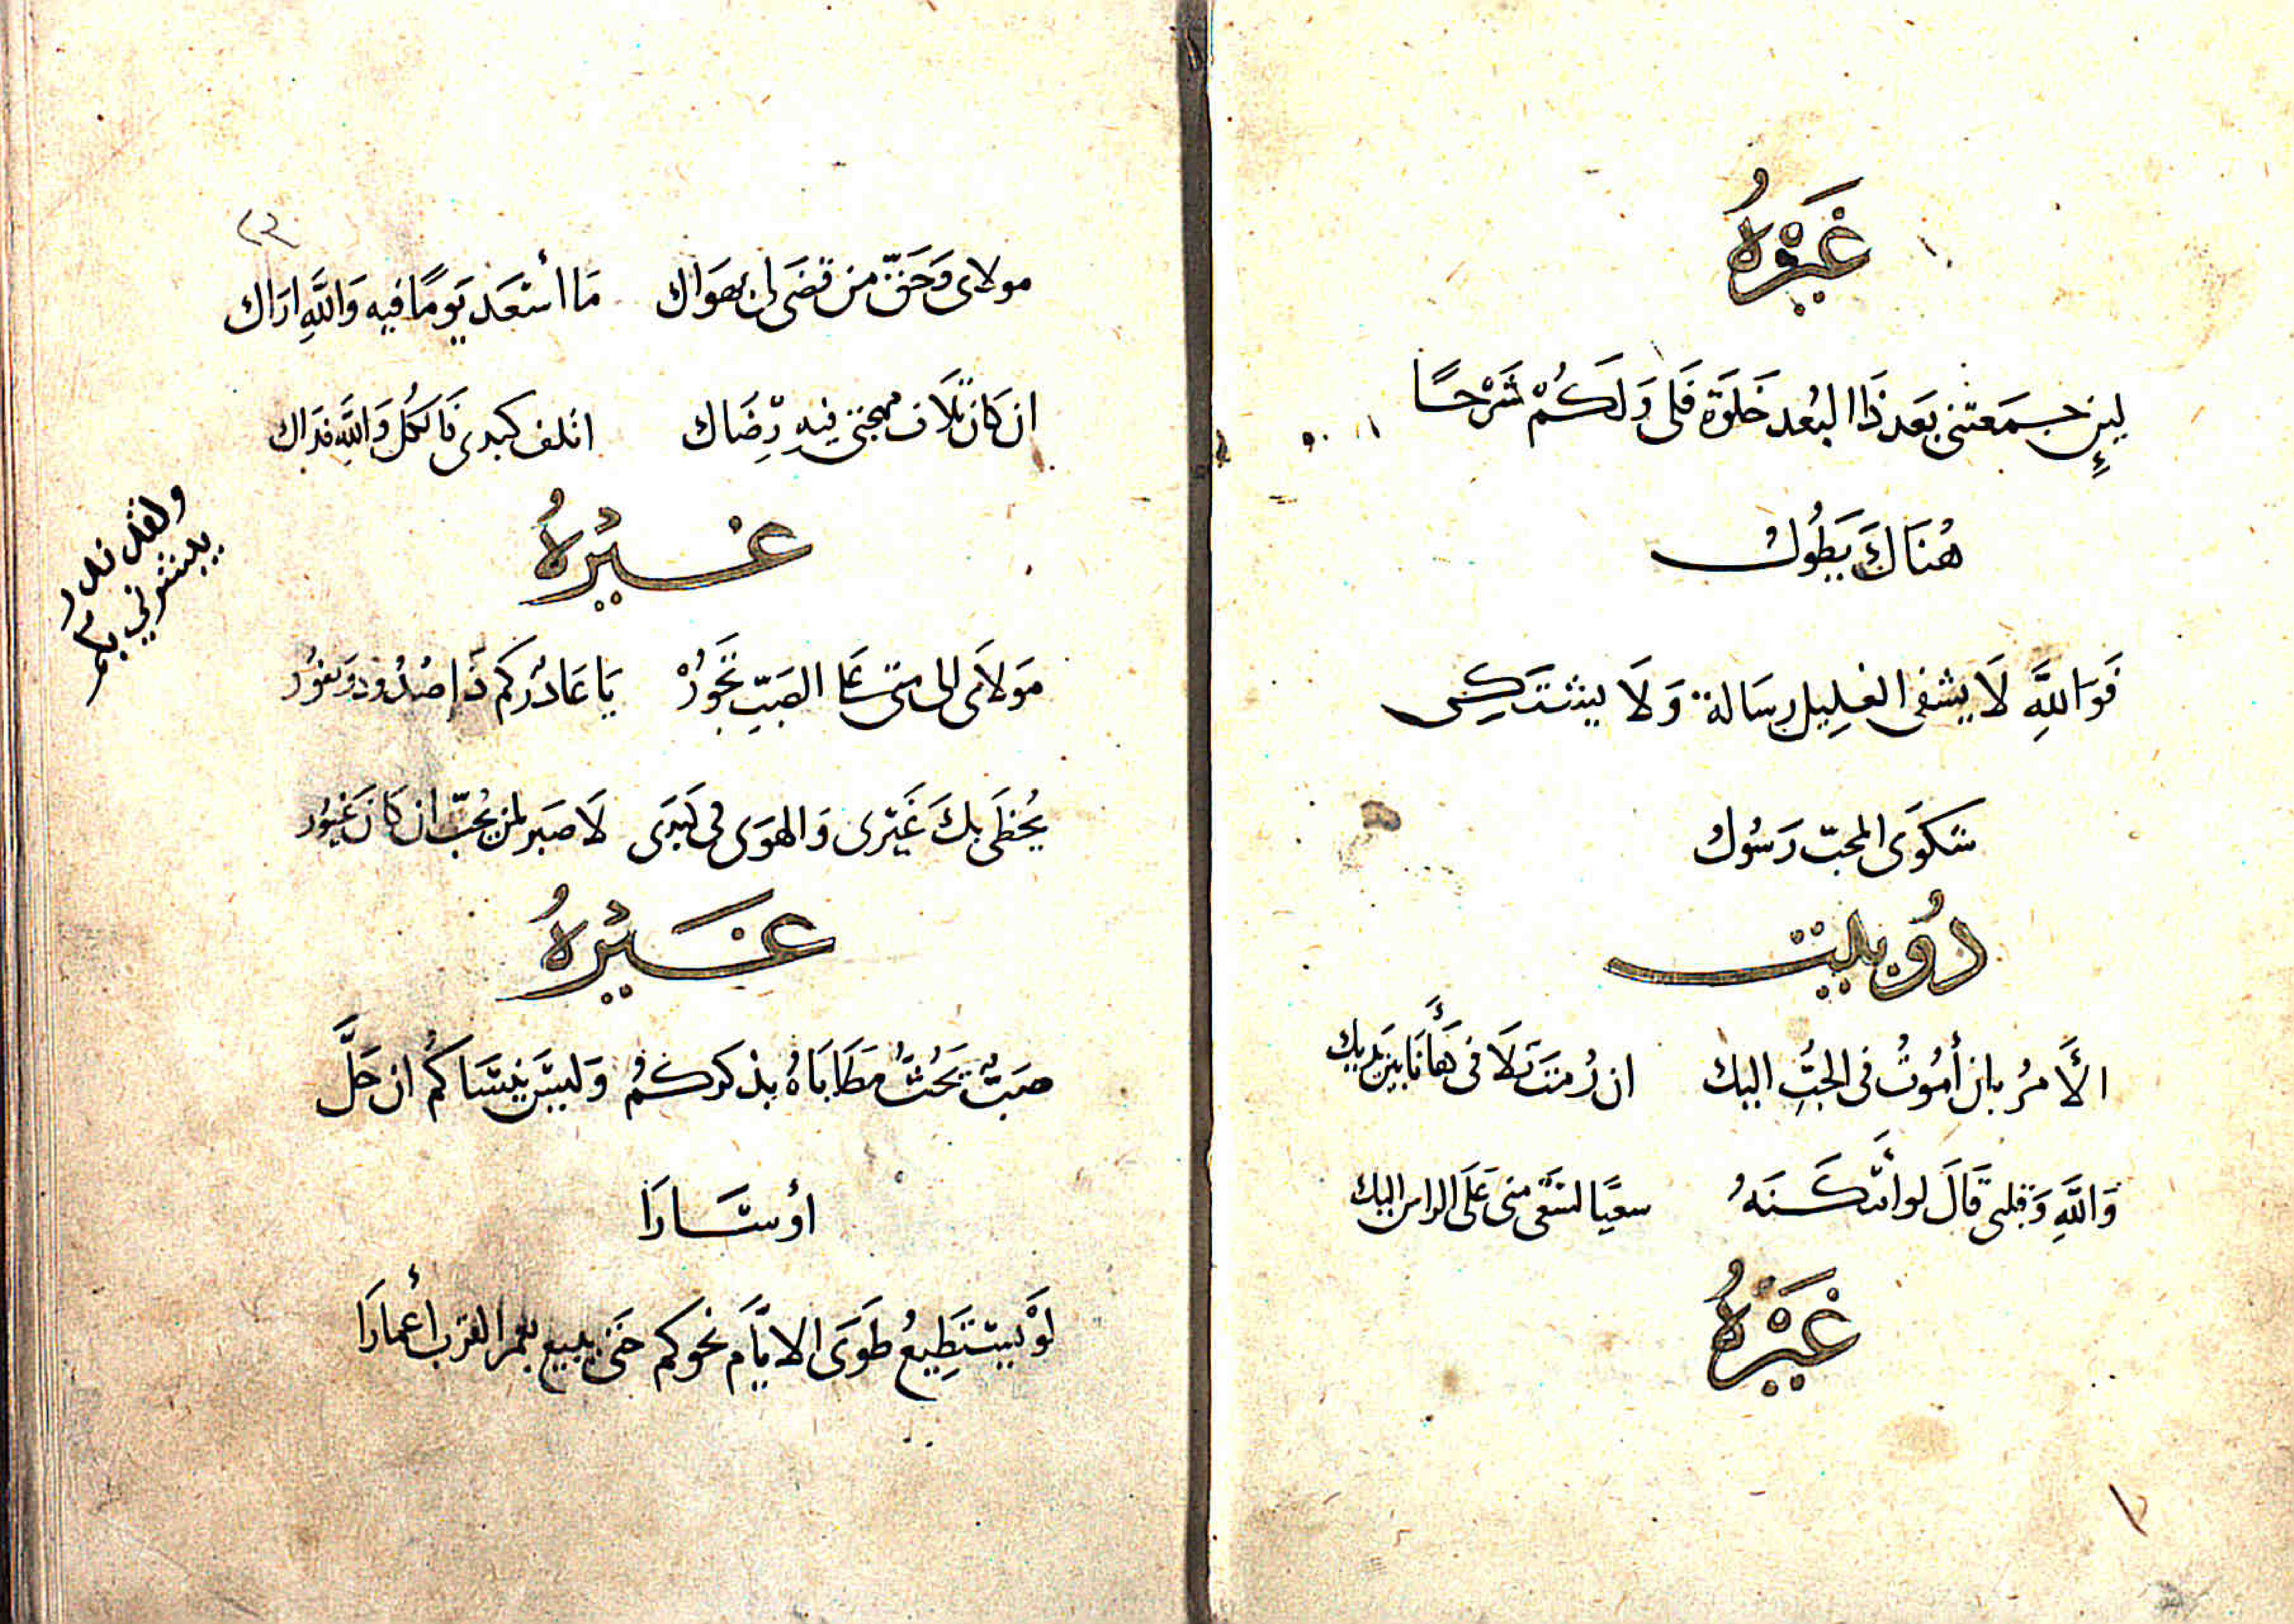 غَيْرُهُ
لَئِن جَمَعَتْنِي بَعَدَ ذَا البُعد خَلوَة فَلى وَلَكُمْ شَرْحًا
هُنَاكَ يَطُولُ
فَوَاللَّهِ لَا يشفى الغلِيل رسَالة وَلَا يشتَكِى
شَكوَى المحبّ رَسُولُ
دُوبيت
الأَمرُ بان أمُوتُ فى الحُبِّ اليك ان رُمتَ تَلَافى هَا أنَا بَين يَديك
وَاللَّهِ وَقلبى قَالَ لو امْكَنَهُ سعيًا لسَعَى منى عَلَى الراس اليك
غَيْرُهُ
مولاى وَحَقّ من قَضَى لى بهَوَاك مَا أسْعَد يَومًا فيه وَاللَّهِ ارَاك
ان كَان تَلَاف مهجتى فيهِ رِضَاك اتلف كبدى فَالكُل وَاللَّه فدَاك
غَيْرُهُ
مَولَاى الى متى عَلى الصَبِّ تَجُورْ يَا غَادُركم ذَا صُدُود وَنفُور
يُحظَى بكَ غَيْرى وَالهوَى فى كَبدَى لَا صَبر لمن يُحبّ ان كَانَ غيُور
غَيْرُهُ
صَبٌّ يَحُثُّ مَطَايَاهُ بذكركُمُ وَليسَ ينسَاكُم ان حَلَّ
أوْ سَارَا
لَوْ يَستَطِيعُ طَوَى الايَّام نحوكم حَتى يبيع بعمر القرب أعمارَا